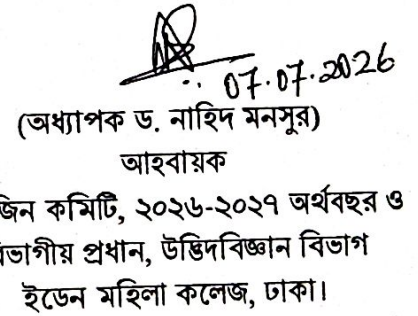 07.07.2026
(অধ্যাপক ড. নাহিদ মনসুর)
আহবায়ক
কমিটি, ২০২৬-২০২৭ অর্থবছর ও
বিভাগীয় প্রধান, উদ্ভিদবিজ্ঞান বিভাগ
ইডেন মহিলা কলেজ, ঢাকা।